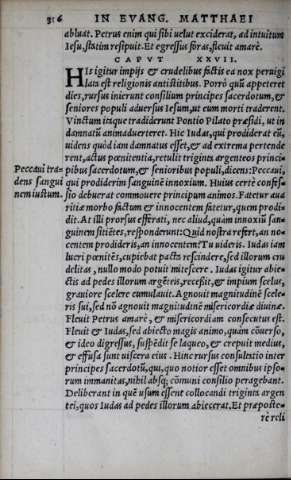 316 IN EVANG. MATTHAEI
abluat. Petrus enim qui sibi uelut exciderat, ad intuitum
Iesu, statim resipuit. Et egressus foras, fleuit amarè.
CAPVT XXVII.
HIs igitur impijs & crudelibus factis ea nox peruigi
lata est religionis antistitibus. Porrò quũ appeteret
dies, rursus inierunt consilium principes sacerdotum, &
seniores populi aduersus Iesum, ut eum morti traderent.
Vinctum itaque tradiderunt Pontio Pilato præsidi, ut in
damnatũ animaduerteret. Hic Iudas, qui prodiderat eũ,
uidens quòd iam damnatus esset, & ad extrema pertende
rent, actus pœnitentia, retulit triginta argenteos princi-
Peccaui tra pibus sacerdotum, & senioribus populi, dicens: Peccaui,
dens sangui qui prodiderim sanguinẽ innoxium. Huius certè confes-
nem iustum. sio debuerat commouere principum animos. Fatetur aua
ritiæ morbo factum & innocentem fatetur, quem prodi-
dit. At illi prorsus efferati, nec aliud, quàm innoxiũ san-
guinem sitiẽtes, responderunt: Quid nostra refert, an no-
centem prodideris, an innocentem? Tu uideris. Iudas iam
lucri pœnitẽs, cupiebat pacta rescindere, sed illorum cru
delitas, nullo modo potuit mitescere. Iudas igitur abie-
ctis ad pedes illorum argẽteis, recessit, & impium scelus,
grauiore scelere cumulauit. Agnouit magnitudinẽ scele-
ris sui, sed nõ agnouit magnitudinẽ misericordiæ diuinæ.
Fleuit Petrus amarè, & misericordiam consecutus est.
Fleuit & Iudas, sed abiecto magis animo, quàm cõuerso,
& ideo digressus, suspẽdit se laqueo, & crepuit medius,
& effusa sunt uiscera eius. Hinc rursus consultatio inter
principes sacerdotũ, qui, quo notior esset omnibus ipso-
rum immanitas, nihil absq; cõmuni consilio peragebant.
Deliberant in quẽ usum essent collocandi triginta argen
tei, quos Iudas ad pedes illorum abiecerat. Et præposte-
rè reli